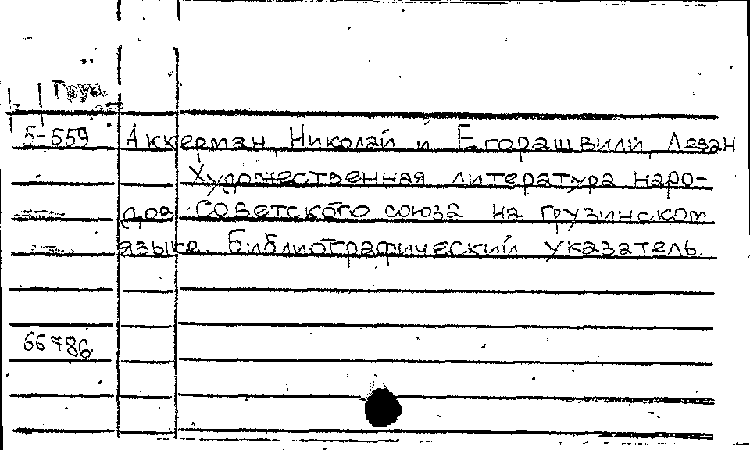 Груз.
Б-559 Аккерман, Николай и Егорашвили, Леван
Художественная литература наро-
дов Советского союза на грузинском
языке. Библиографический указатель.
66786